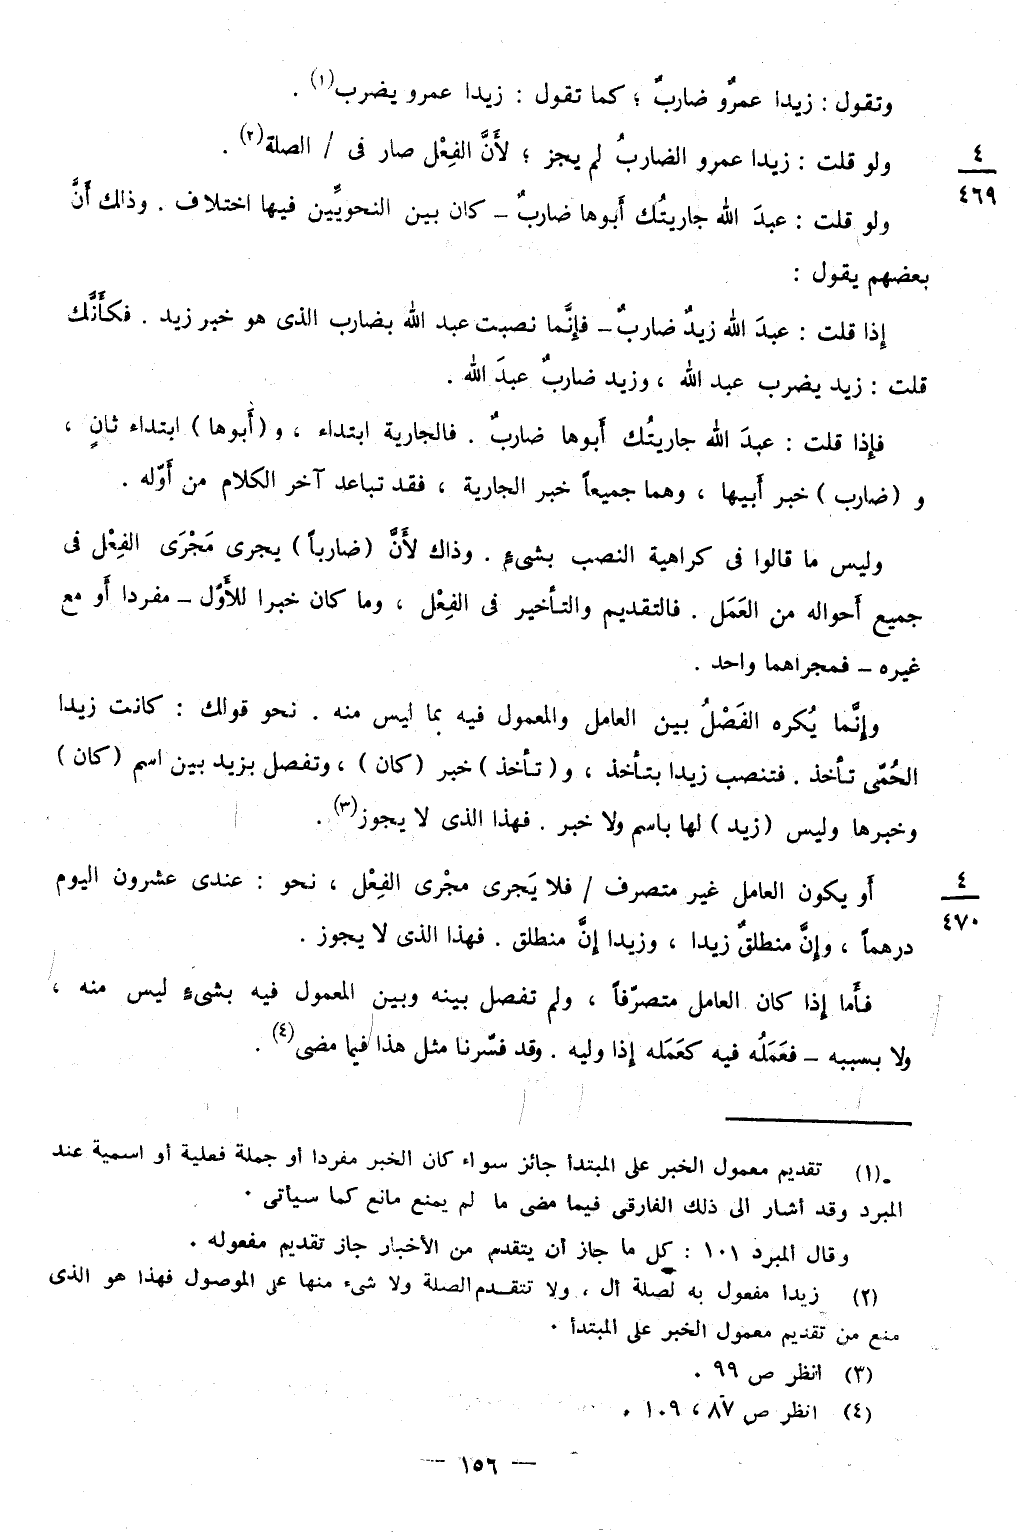 وتقول : زيدا عمرٌو ضاربٌ ؛ كما تقول : زيدا عمرو يضرب(١) .
ولو قلت : زيدا عمرو الضاربُ لم يجز ؛ لأَنَّ الفِعْل صار فى / الصلة(٢) .
٤
٤٦٩
ولو قلت : عبدَ الله جاريتُك أَبوها ضاربٌ – كان بين النحويِّين فيها اختلاف . وذالك أَنَّ
بعضهم يقول :
إِذا قلت : عبدَ الله زيدٌ ضاربٌ – فإِنَّما نصبت عبد الله بضارب الذى هو خبر زيد . فكأَنَّك
قلت : زيد يضرب عبد الله ، وزيد ضاربٌ عبدَ الله .
فإِذا قلت : عبدَ الله جاريتُك أَبوها ضاربٌ . فالجارية ابتداء ، و (أَبوها) ابتداء ثانٍ ،
و (ضارب) خبر أَبيها ، وهما جميعاً خبر الجارية ، فقد تباعد آخر الكلام من أَوّله .
وليس ما قالوا فى كراهية النصب بشىءٍ . وذاك لأَنَّ (ضارباً) يجرى مَجْرَى الفِعْل فى
جميع أَحواله من العَمَل . فالتقديم والتأخير فى الفِعْل ، وما كان خبرا للأَوّل – مفردا أَو مع
غيره – فمجراهما واحد .
وإِنَّما يُكره الفَصْلُ بين العامل والمعمول فيه بما ليس منه . نحو قولك : كانت زيدا
الحُمّى تأخذ . فتنصب زيدا بتأخذ ، و (تأخذ) خبر (كان) ، وتفصل بزيد بين اسم (كان)
وخبرها وليس (زيد) لها باسم ولا خبر . فهذا الذى لا يجوز(٣) .
أَو يكون العامل غير متصرف / فلا يَجرى مجْرى الفِعْل ، نحو : عندى عشرون اليوم
٤
٤٧٠
درهماً ، وإِنَّ منطلقٌ زيدا ، وزيدا إِنَّ منطلق . فهذا الذى لا يجوز .
فأَما إِذا كان العامل متصرّفاً ، ولم تفصل بينه وبين المعمول فيه بشىءٍ ليس منه ،
ولا بسببه – فعَمَلُه فيه كعَمَله إِذا وليه . وقد فسّرنا مثل هذا فيما مضى(٤) .
(١) تقديم معمول الخبر على المبتدأ جائز سواء كان الخبر مفردا أو جملة فعلية أو اسمية عند
المبرد وقد أشار الى ذلك الفارقى فيما مضى ما لم يمنع مانع كما سيأتى ٠
وقال المبرد ١٠١ : كل ما جاز أن يتقدم من الأخبار جاز تقديم مفعوله .
(٢) زيدا مفعول به لصلة أل ، ولا تتقدم الصلة ولا شىء منها على الموصول فهذا هو الذى
منع من تقديم معمول الخبر على المبتدأ ٠
(٣) انظر ص ٩٩ .
(٤) انظر ص ٨٧ ، ١٠٩ .
— ١٥٦ —